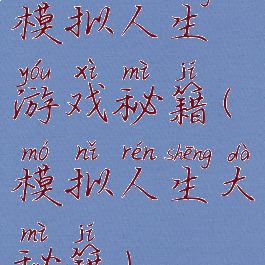 模拟人生
yóu xì mì jí
游戏秘籍(
mó nǐ rén shēng dà
模拟人生大
mì jí
秘籍)